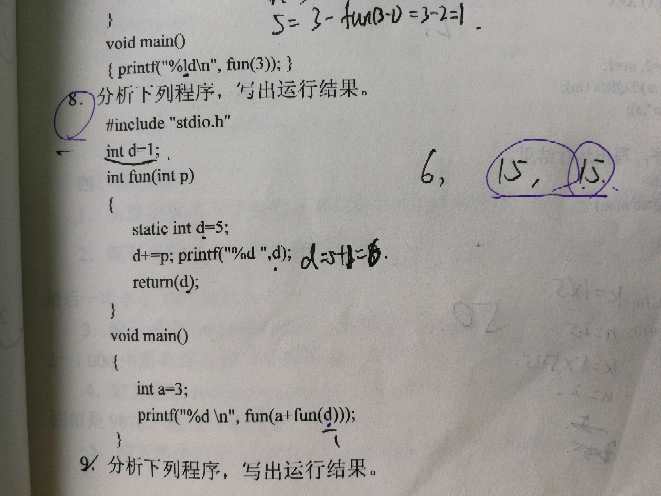 }
5 = 3 - fun(3-1) = 3-2=1.
void main()
{ printf("%ld\n", fun(3)); }
8. 分析下列程序，写出运行结果。
#include "stdio.h"
int d=1;
int fun(int p)
6, 15, 15.
{
static int d=5;
d+=p; printf("%d ",d); d=5+1=6.
return(d);
}
void main()
{
int a=3;
printf("%d \n", fun(a+fun(d)));
1
}
9. 分析下列程序，写出运行结果。